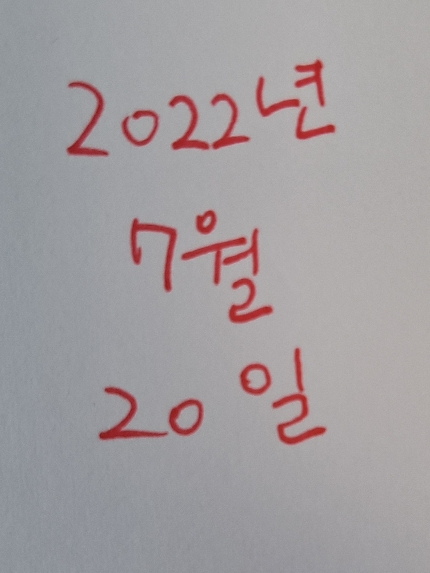 2022년
7월
20일